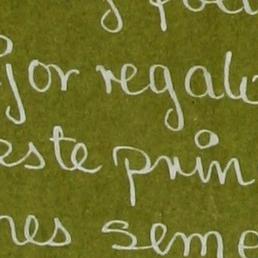 jor regal
este prin
nes seme